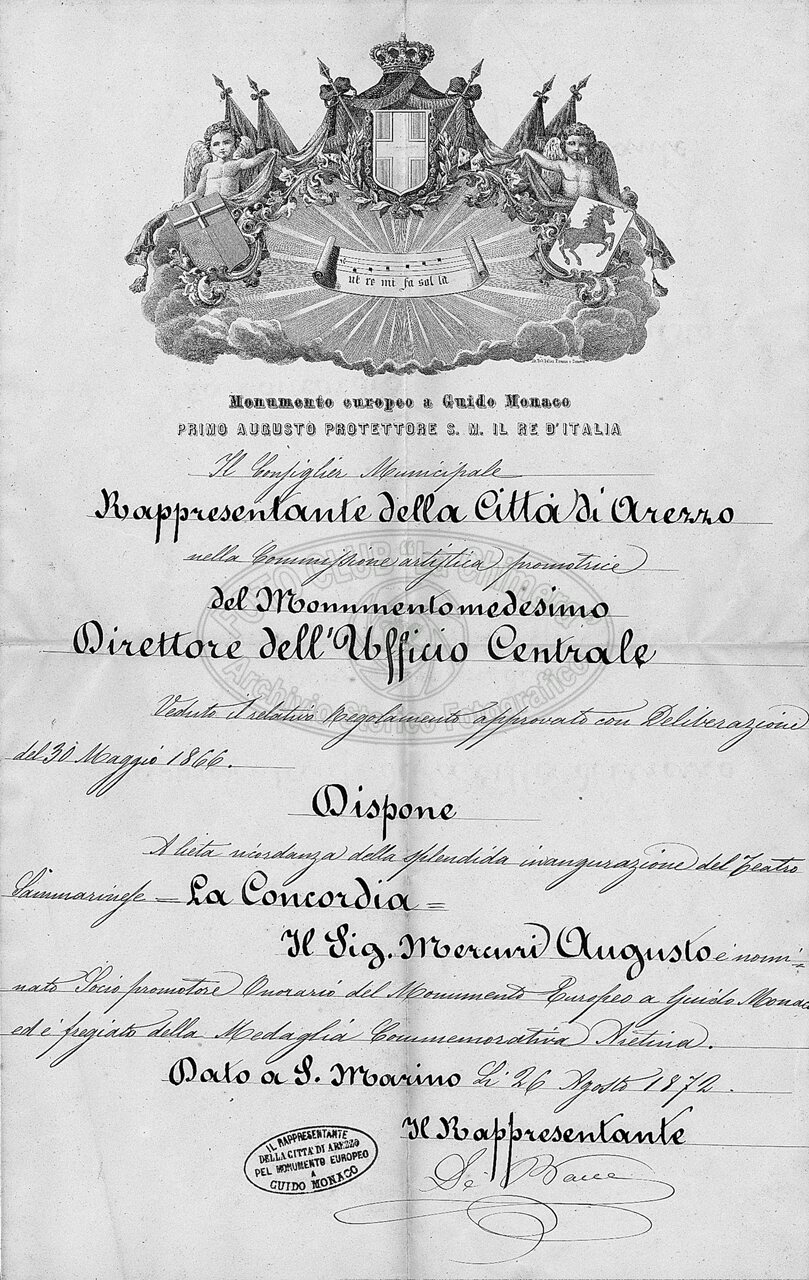 ut re mi fa sol la
Monumento europeo a Guido Monaco
PRIMO AUGUSTO PROTETTORE S. M. IL RE D'ITALIA
Il Consiglier Municipale
Rappresentante della Città di Arezzo
nella Commissione artistica promotrice
del Monumento medesimo
Direttore dell'Ufficio Centrale
FOTO CLUB "La Chimera"
Archivio Storico Fotografico
Veduto il relativo Regolamento approvato con Deliberazione
del 30 Maggio 1866.
Dispone
A lieta ricordanza della splendida inaugurazione del Teatro
Sammarinese = La Concordia =
Il Sig. Mercuri Augusto è nomi=
nato Socio promotore Onorario del Monumento Europeo a Guido Monaco
ed è fregiato della Medaglia Commemorativa Aretina.
Dato a S. Marino Li 26 Agosto 1872.
Il Rappresentante
IL RAPPRESENTANTE
DELLA CITTÀ DI AREZZO
PEL MONUMENTO EUROPEO
A
GUIDO MONACO